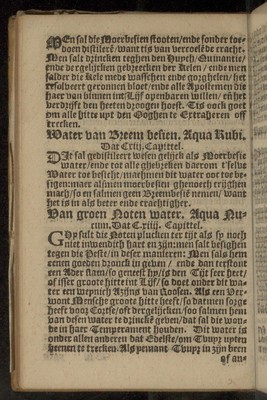 MEn sal die Moerbesien stooten/ ende sonder toe-
doen distilere/ want tis van verroelde cracht.
Men salt drincken teghen den Huych/ Quinantie/
ende dergelijcken gebreecken der Kelen/ ende men
salder die Kele mede wasschen ende gorghelen/ het
resolveert geronnen bloet/ ende alle Apostemen die
haer van binnen int Lijf openbaren willen/ en het
verdrijft den heeten droogen hoest. Tis oock goet
om alle hitte uyt den Ooghen te Extraheren oft
trecken.
Water van Breem besien. Aqua Rubi.
Dat Criij. Capittel.
DIt sal gedistilleert wesen gelijck als Moerbesie
water/ ende tot alle ghelijcken daerom t'selve
Water toe besicht/ machmen dit water ooc toe be-
sigen: maer alsmen moerbesien ghenoech crijghen
mach/ so en salmen geen Breembesie nemen/ want
het is in als beter ende crachtigher.
Van groen Noten water. Aqua Nu-
cum. Dat C.riiij. Capittel.
GHy sult die Noten plucken ter tijt als sy noch
niet inwendich hart en zijn: men salt besighen
tegen die Peste/ in deser manieren: Men sals hem
eenen goeden dronck in geben/ ende dan terstont
een Ader slaen/ so geneest hy/ is den Tijt seer heet/
of isser groote hitte int Lijf/ so doet onder dit wa-
ter een weynich Azijns van Roosen. Als een Ver-
wont Mensche groote hitte heeft/ so dat men sorge
heeft voor Cortse/ oft dergelijcken/ soo salmen hem
van desen water te drincke geben/ dat sal die won-
de in haer Temperament houden. Dit water is
onder allen anderen dat Edelste/ om Vuyr uyten
leenen te trecken. Als yemant Vuyr in zijn been
of an-